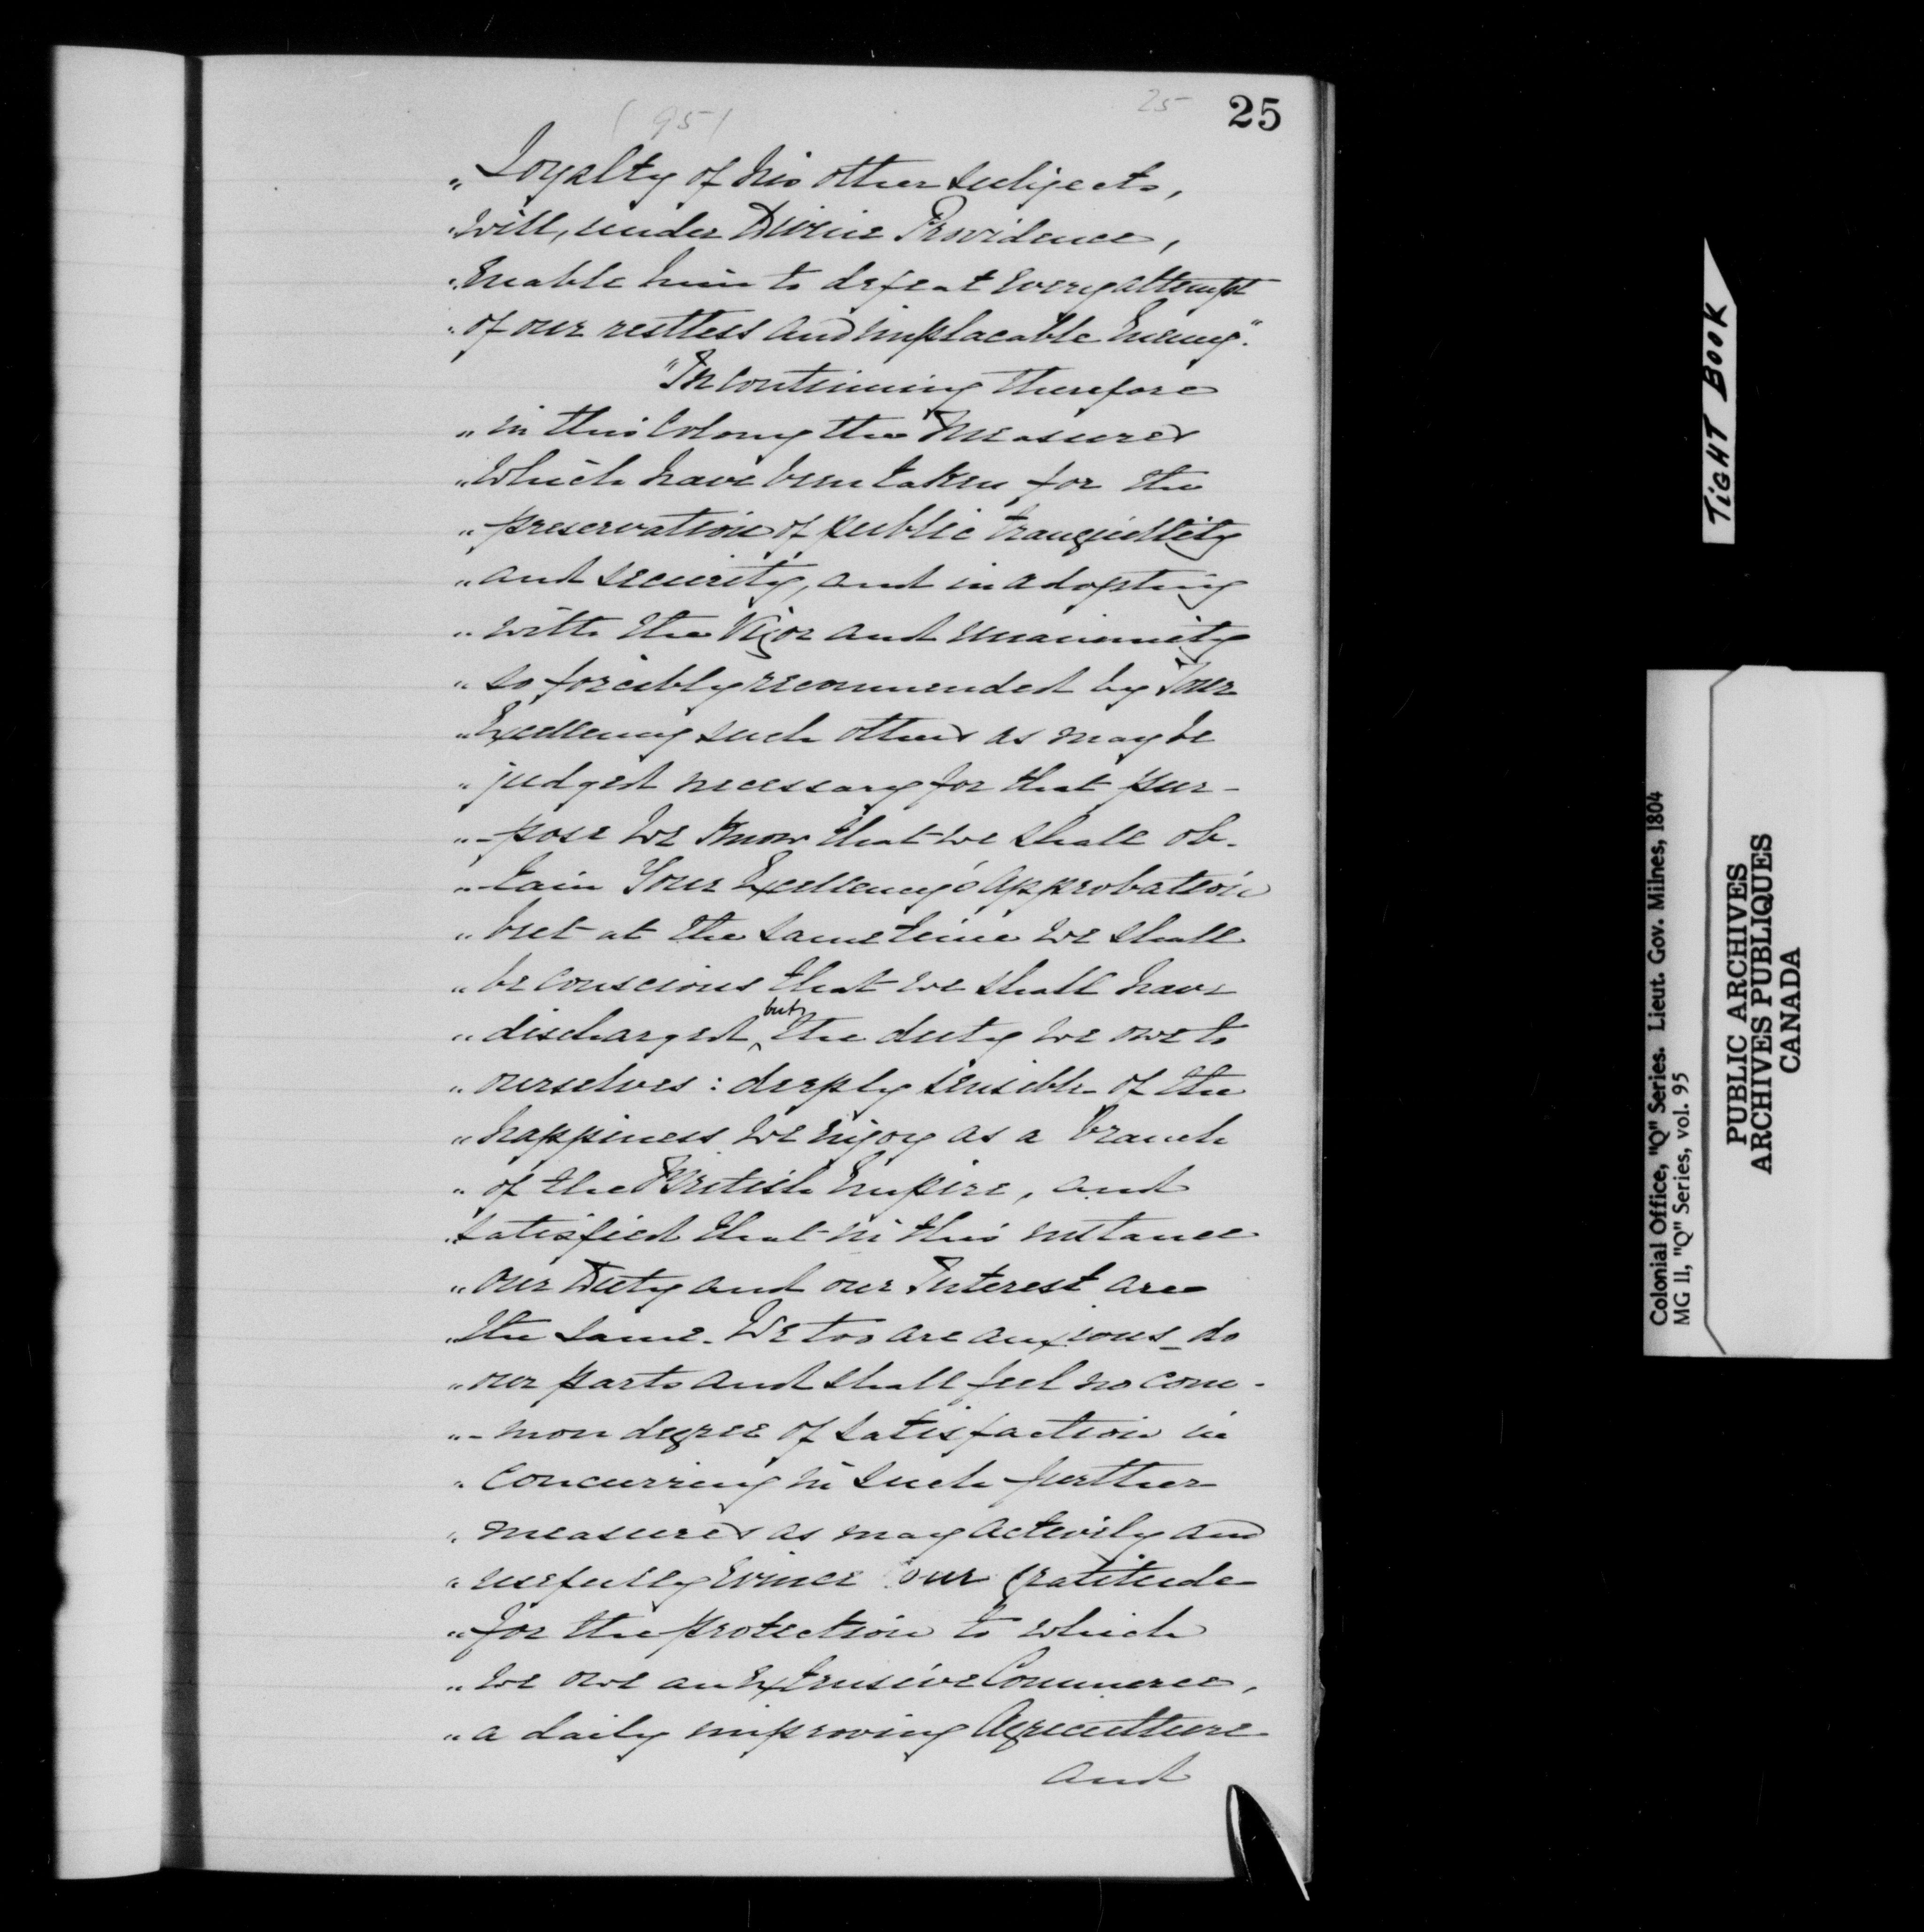 (95)
25
25
"Loyalty of his other subjects,
"will, under Divine Providence,
"enable him to defeat every attempt
"of our restless and implacable Enemy."
"In continuing therefore
"in this Colony the Measures
"which have been taken for the
"preservation of public tranquillity
"and security, and in adopting
"with the Vigor and unanimity
"so forcibly recommended by Your
"Excellency such others as may be
"judged necessary for that pur-
"-pose We Know that we shall ob-
"-tain Your Excellency's approbation
"but at the same time we shall
"be conscious that we shall have
"discharged but the duty we owe to
"ourselves: deeply sensible of the
"happiness we enjoy as a branch
"of the British Empire, and
"satisfied that in this instance
"our Duty and our Interest are
"the same. We too are anxious do
"our parts and shall feel no com-
"-mon degree of satisfaction in
"concurring in such further
"measures as may actively and
"usefully evince our gratitude
"for the protection to which
"we owe an extensive Commerce,
"a daily improving Agriculture
and
TIGHT BOOK
Colonial Office, "Q" Series. Lieut. Gov. Milnes, 1804
MG 11, "Q" Series, vol. 95
PUBLIC ARCHIVES
ARCHIVES PUBLIQUES
CANADA